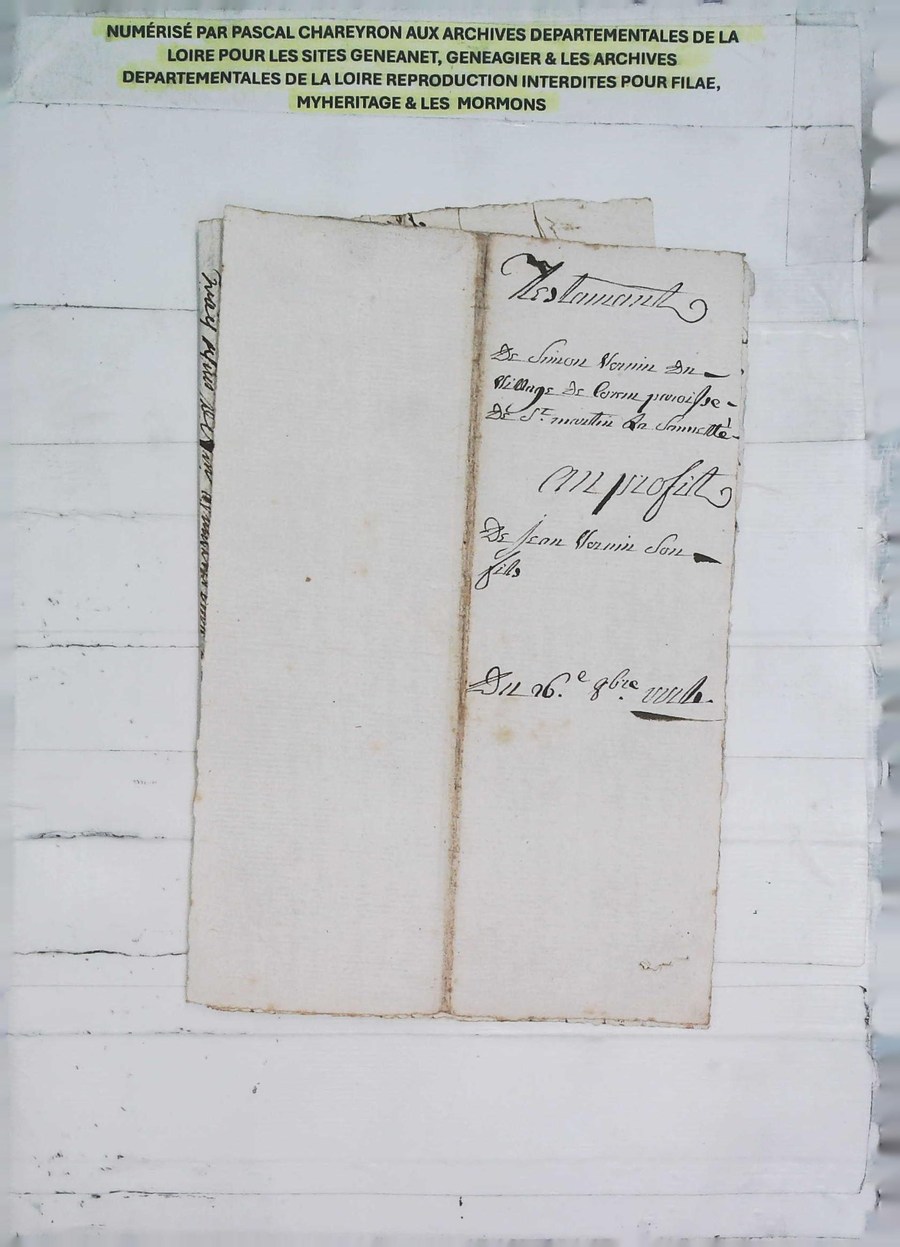 NUMÉRISÉ PAR PASCAL CHAREYRON AUX ARCHIVES DEPARTEMENTALES DE LA
LOIRE POUR LES SITES GENEANET, GENEAGIER & LES ARCHIVES
DEPARTEMENTALES DE LA LOIRE REPRODUCTION INTERDITES POUR FILAE,
MYHERITAGE & LES MORMONS
Testament
De Simon Vernin Du
Village de paroisse
De St. martin La Sauveté
au profit
De Jean Vernin Son
fils
Du 26.e 9bre